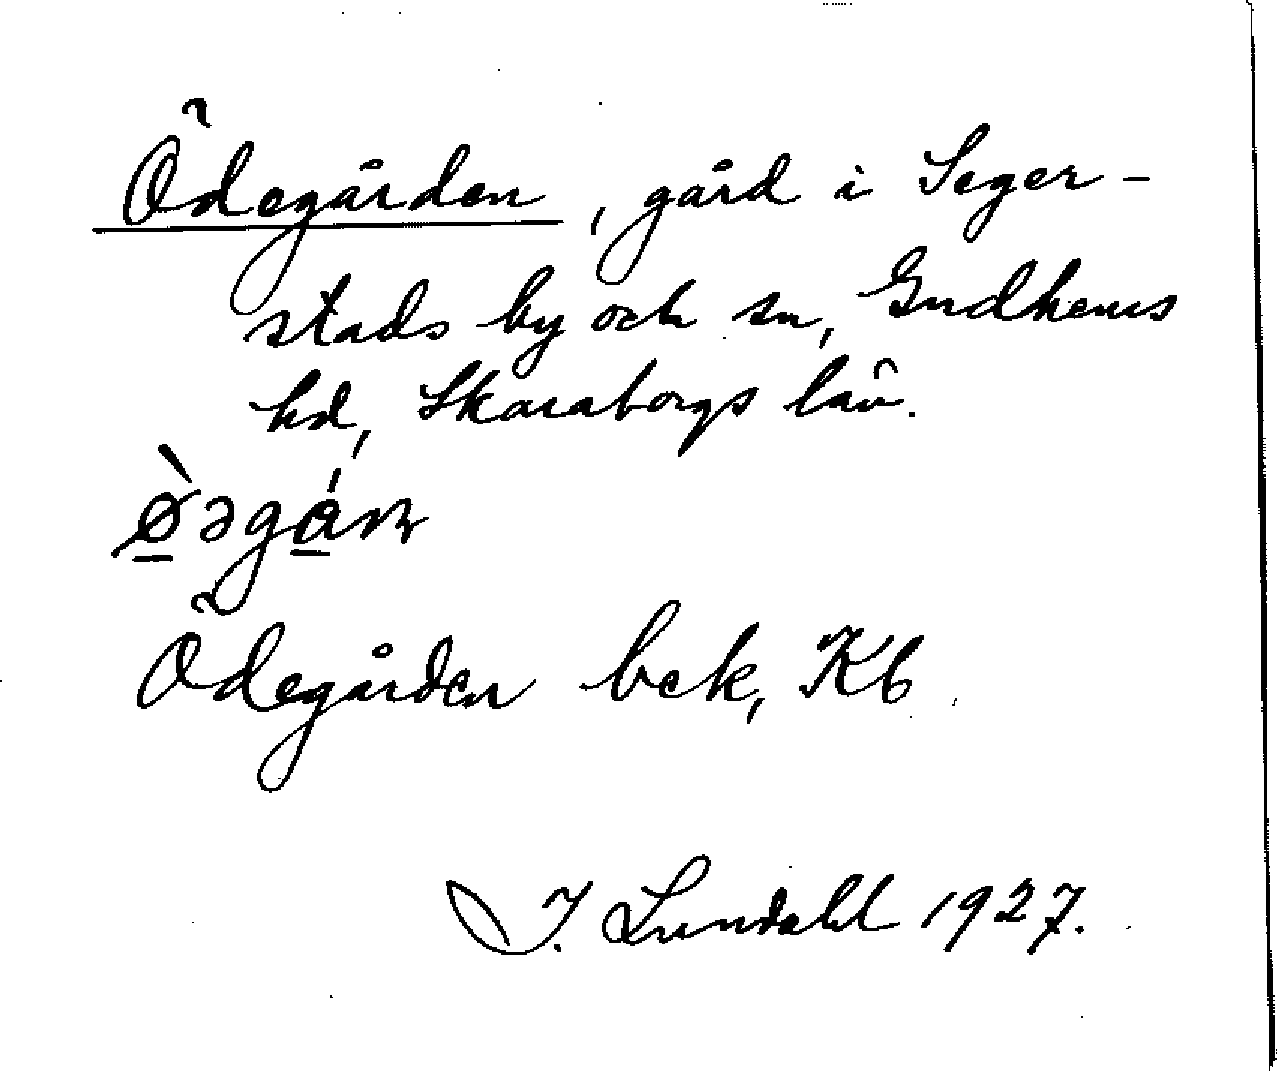 Ödegården, gård i Seger-
stads by och sn, Gudhems
hd, Skaraborgs län.
ø̠̀əgá̠rn
Ödegården bek, Kb.
I. Lundahl 1927.